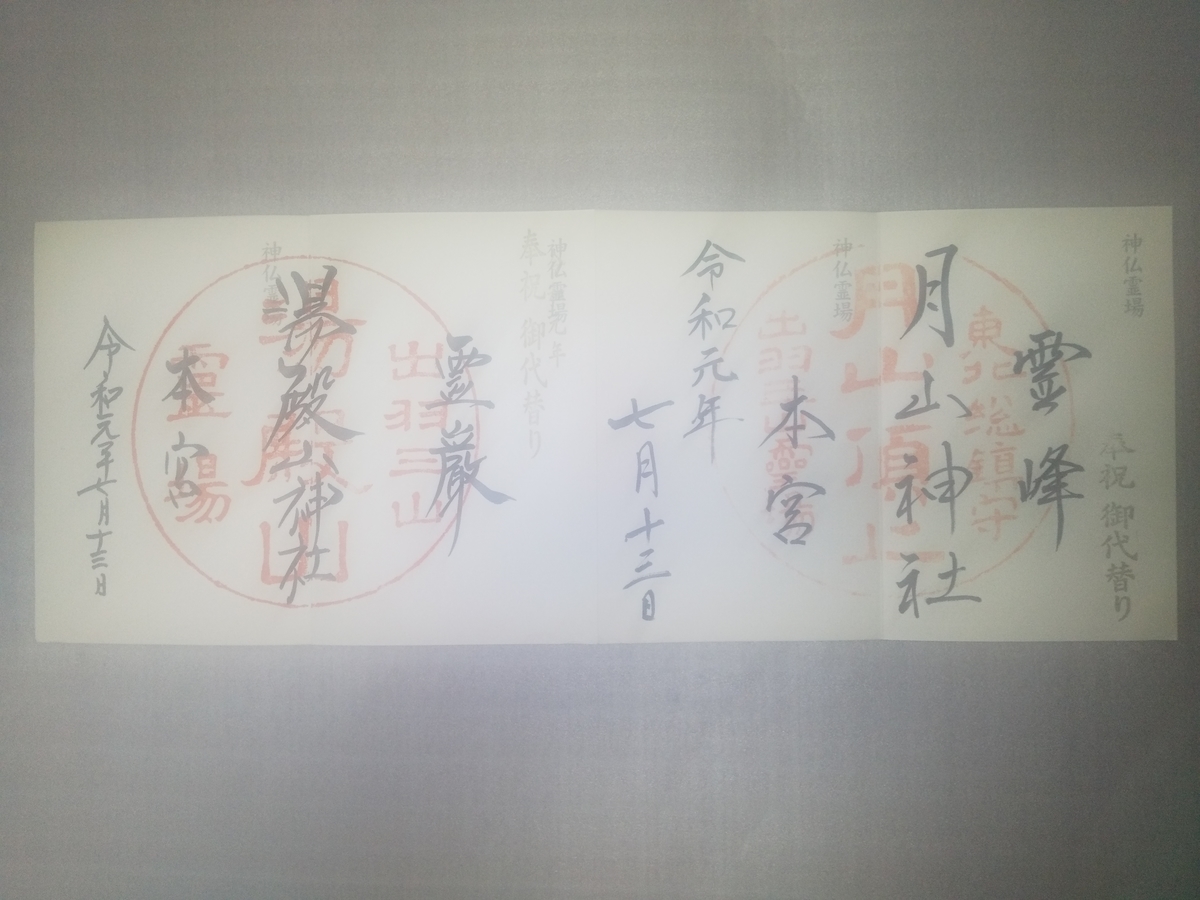 神仏霊場
奉祝 御代替り
霊峰
東北総鎮守
月山神社
月山頂上
神仏霊場
本宮
令和元年
七月十三日
神仏霊場
奉祝 御代替り
霊巌
出羽三山
湯殿山神社
湯殿山
神仏霊
本宮
靈場
令和元年七月十三日